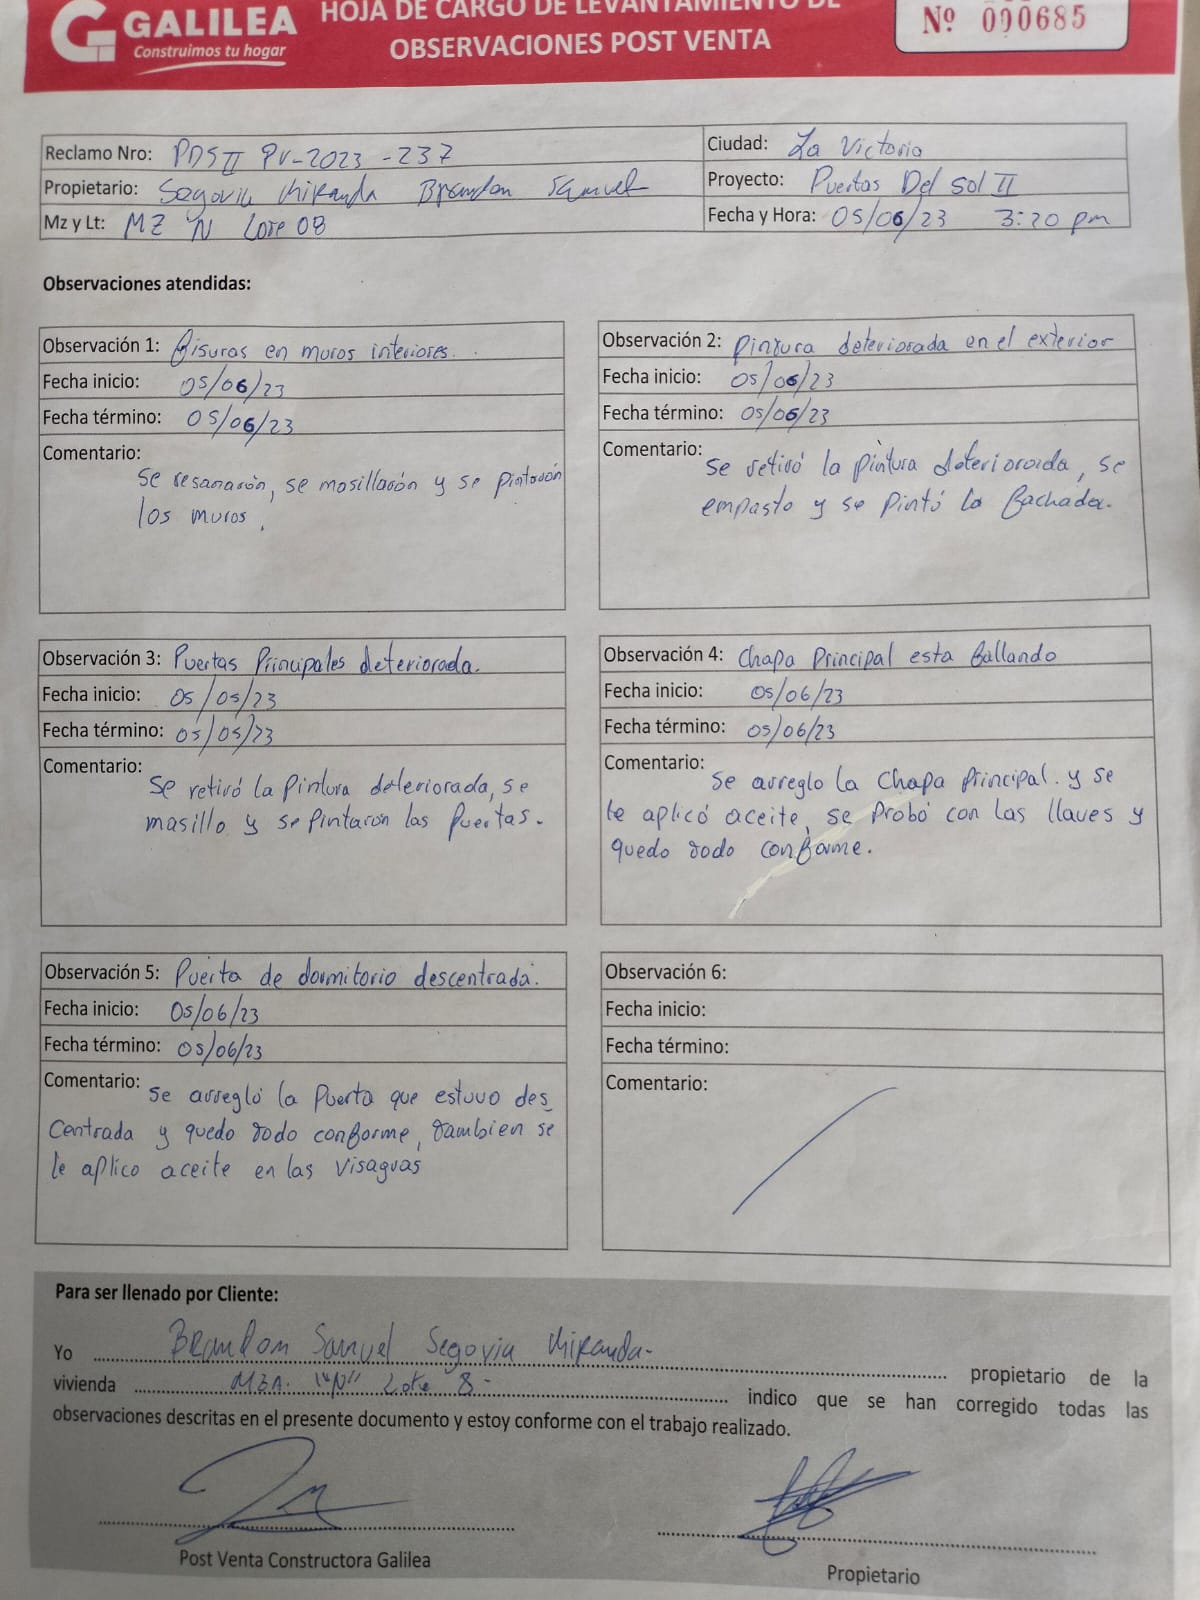 GALILEA
Construimos tu hogar
HOJA DE CARGO DE LEVANTAMIENTO DE
OBSERVACIONES POST VENTA
Nº 000685
Reclamo Nro: PDS II PV-2023-237
Ciudad: La Victoria
Propietario: Segovia Miranda Brandon Samuel
Proyecto: Puertas Del Sol II
Mz y Lt: MZ "N Lote 08
Fecha y Hora: 05/06/23 3:20 pm
Observaciones atendidas:
Observación 1: Fisuras en muros interiores.
Fecha inicio: 05/06/23
Fecha término: 05/06/23
Comentario:
Se resanarón, se masillarón y se pintarón
los muros.
Observación 2: Pintura deteriorada en el exterior
Fecha inicio: 05/06/23
Fecha término: 05/06/23
Comentario:
Se retiró la pintura deteriorada, se
empasto y se pintó la fachada.
Observación 3: Puertas Principales deteriorada.
Fecha inicio: 05/05/23
Fecha término: 05/05/23
Comentario:
Se retiró la pintura deteriorada, se
masillo y se pintaron las puertas.
Observación 4: Chapa Principal esta fallando
Fecha inicio: 05/06/23
Fecha término: 05/06/23
Comentario:
Se arreglo la Chapa Principal. y se
le aplicó aceite, se Probó con las llaves y
quedo todo conforme.
Observación 5: Puerta de dormitorio descentrada.
Fecha inicio: 05/06/23
Fecha término: 05/06/23
Comentario: Se arregló la Puerta que estuvo des
centrada y quedo todo conforme, tambien se
le aplico aceite en las visagras
Observación 6:
Fecha inicio:
Fecha término:
Comentario:
Para ser llenado por Cliente:
Yo Brandon Samuel Segovia Miranda- propietario de la
vivienda MZA. "N" Lote 8- indico que se han corregido todas las
observaciones descritas en el presente documento y estoy conforme con el trabajo realizado.
Post Venta Constructora Galilea
Propietario